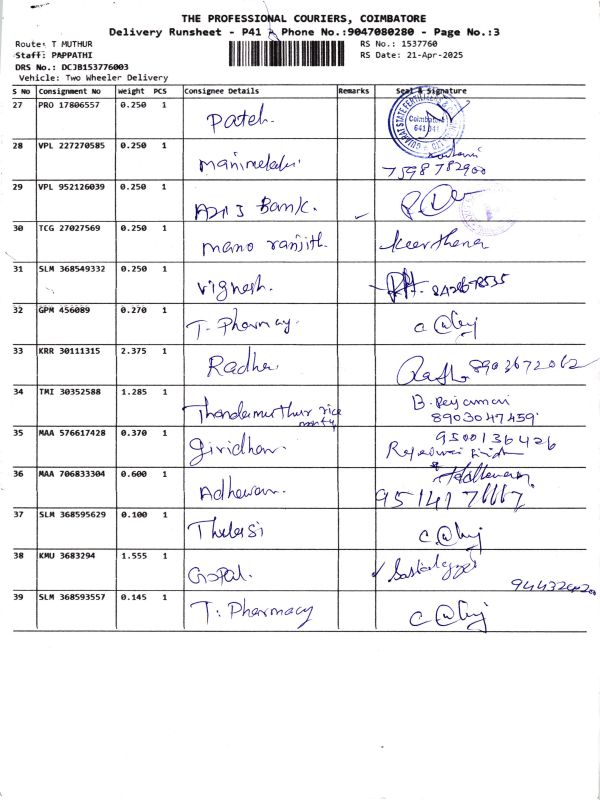 THE PROFESSIONAL COURIERS, COIMBATORE
Delivery Runsheet - P41 Phone No.:9047080280 - Page No.:3
Route: T MUTHUR
RS No.: 1537760
Staff: PAPPATHI
RS Date: 21-Apr-2025
DRS No.: DCJB153776003
Vehicle: Two Wheeler Delivery
S No Consignment No Weight PCS Consignee Details Remarks Seal & Signature
27 PRO 17806557 0.250 1 Patel. Coimbatore 641
28 VPL 227270585 0.250 1 Manimekalai. 7598782900
29 VPL 952126039 0.250 1 Bank.
30 TCG 27027569 0.250 1 mano ranjith. Keerthana
31 SLM 368549332 0.250 1 Vignesh.
32 GPM 456089 0.270 1 T. Pharmacy.
33 KRR 30111315 2.375 1 Radha. 8903672062
34 TMI 30352588 1.285 1 Thondamuthur rice B.
8903047459
35 MAA 576617428 0.370 1 Giridhar. 9500136426
36 MAA 706833304 0.600 1 Adhavan.
37 SLM 368595629 0.100 1 Thulasi
38 KMU 3683294 1.555 1 Gopal.
39 SLM 368593557 0.145 1 T. Pharmacy